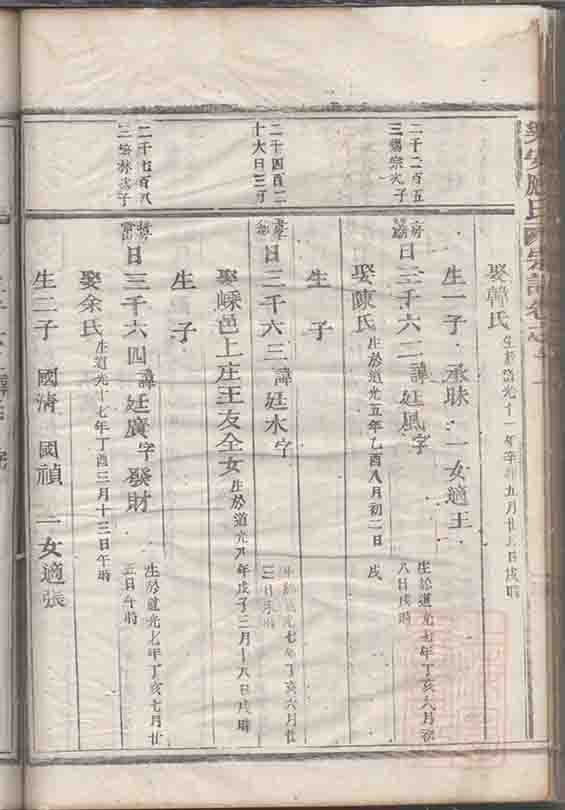 娶韓氏 生於道光十一年辛卯九月廿八日戌時
生一子 承昧 一女適王
二千二百五
三 宗次子
日三千六二 諱廷鳳字 生於道光七年丁亥六月初
八日戌時
娶陳氏 生於道光五年乙酉八月初二日 戌
生 子
二千四百二
十六日三子
日三千六三 諱廷木字 生於道光七年丁亥六月廿
三日 時
娶嵊邑上庄王友全女 生於道光八年戊子三月十八日戌時
生 子
二千七百八
三 林次子
日三千六四 諱廷廣字 發財 生於道光七年丁亥七月廿
五日午時
娶余氏 生道光十七年丁酉三月十三日午時
生二子 國清 國禎 一女適張